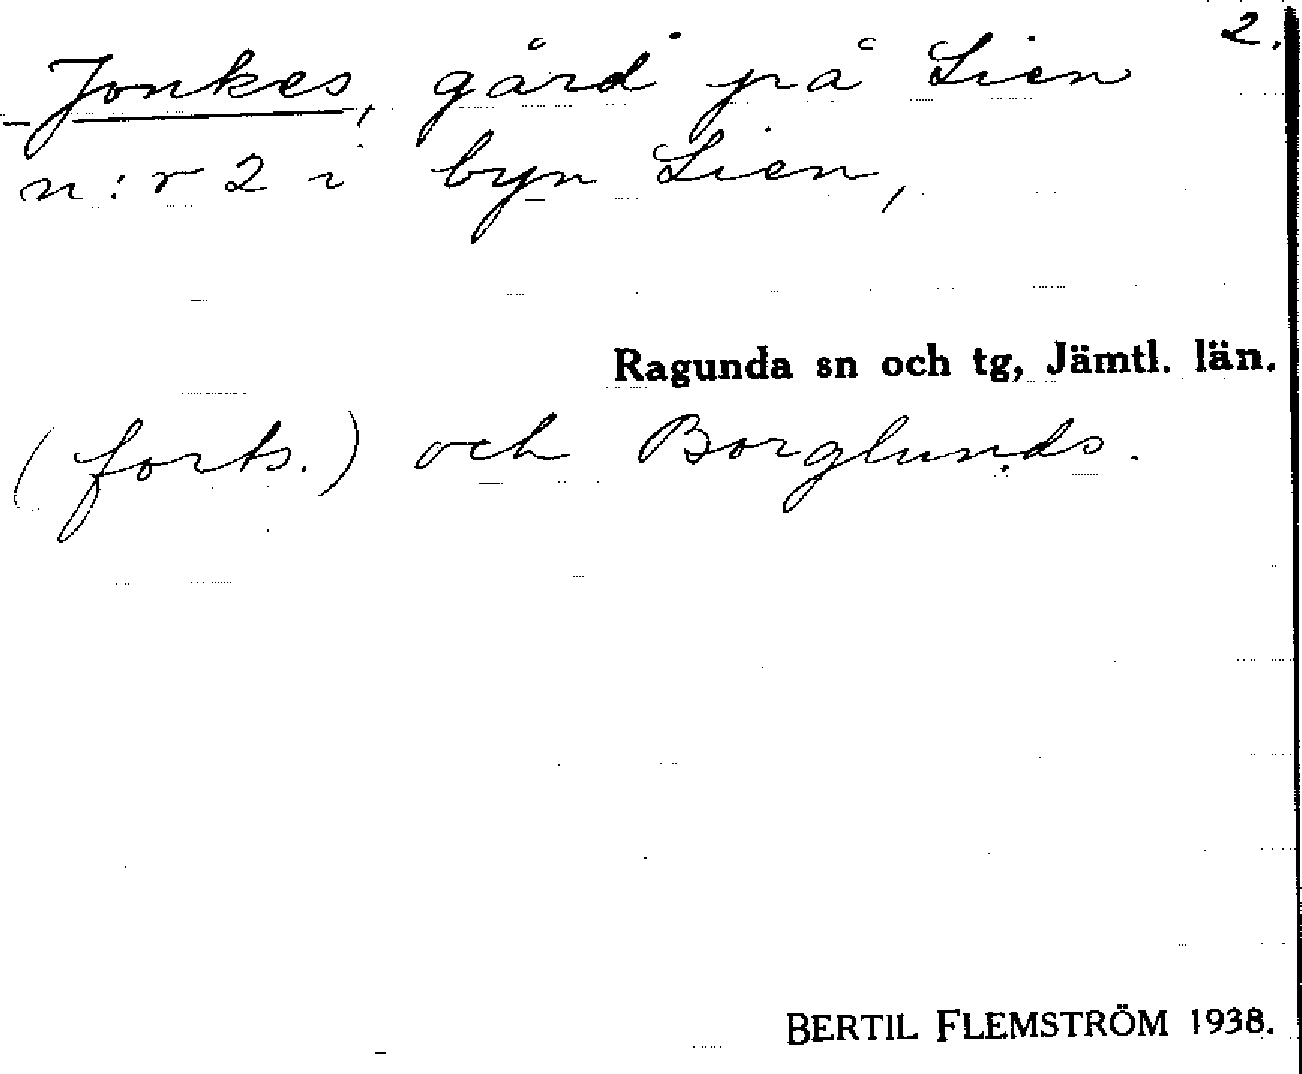 2.
Jonkes, gård på Lien
n:r 2 i byn Lien,
Ragunda sn och tg, Jämtl. län.
(forts.) och Borglunds.
BERTIL FLEMSTRÖM 1938.